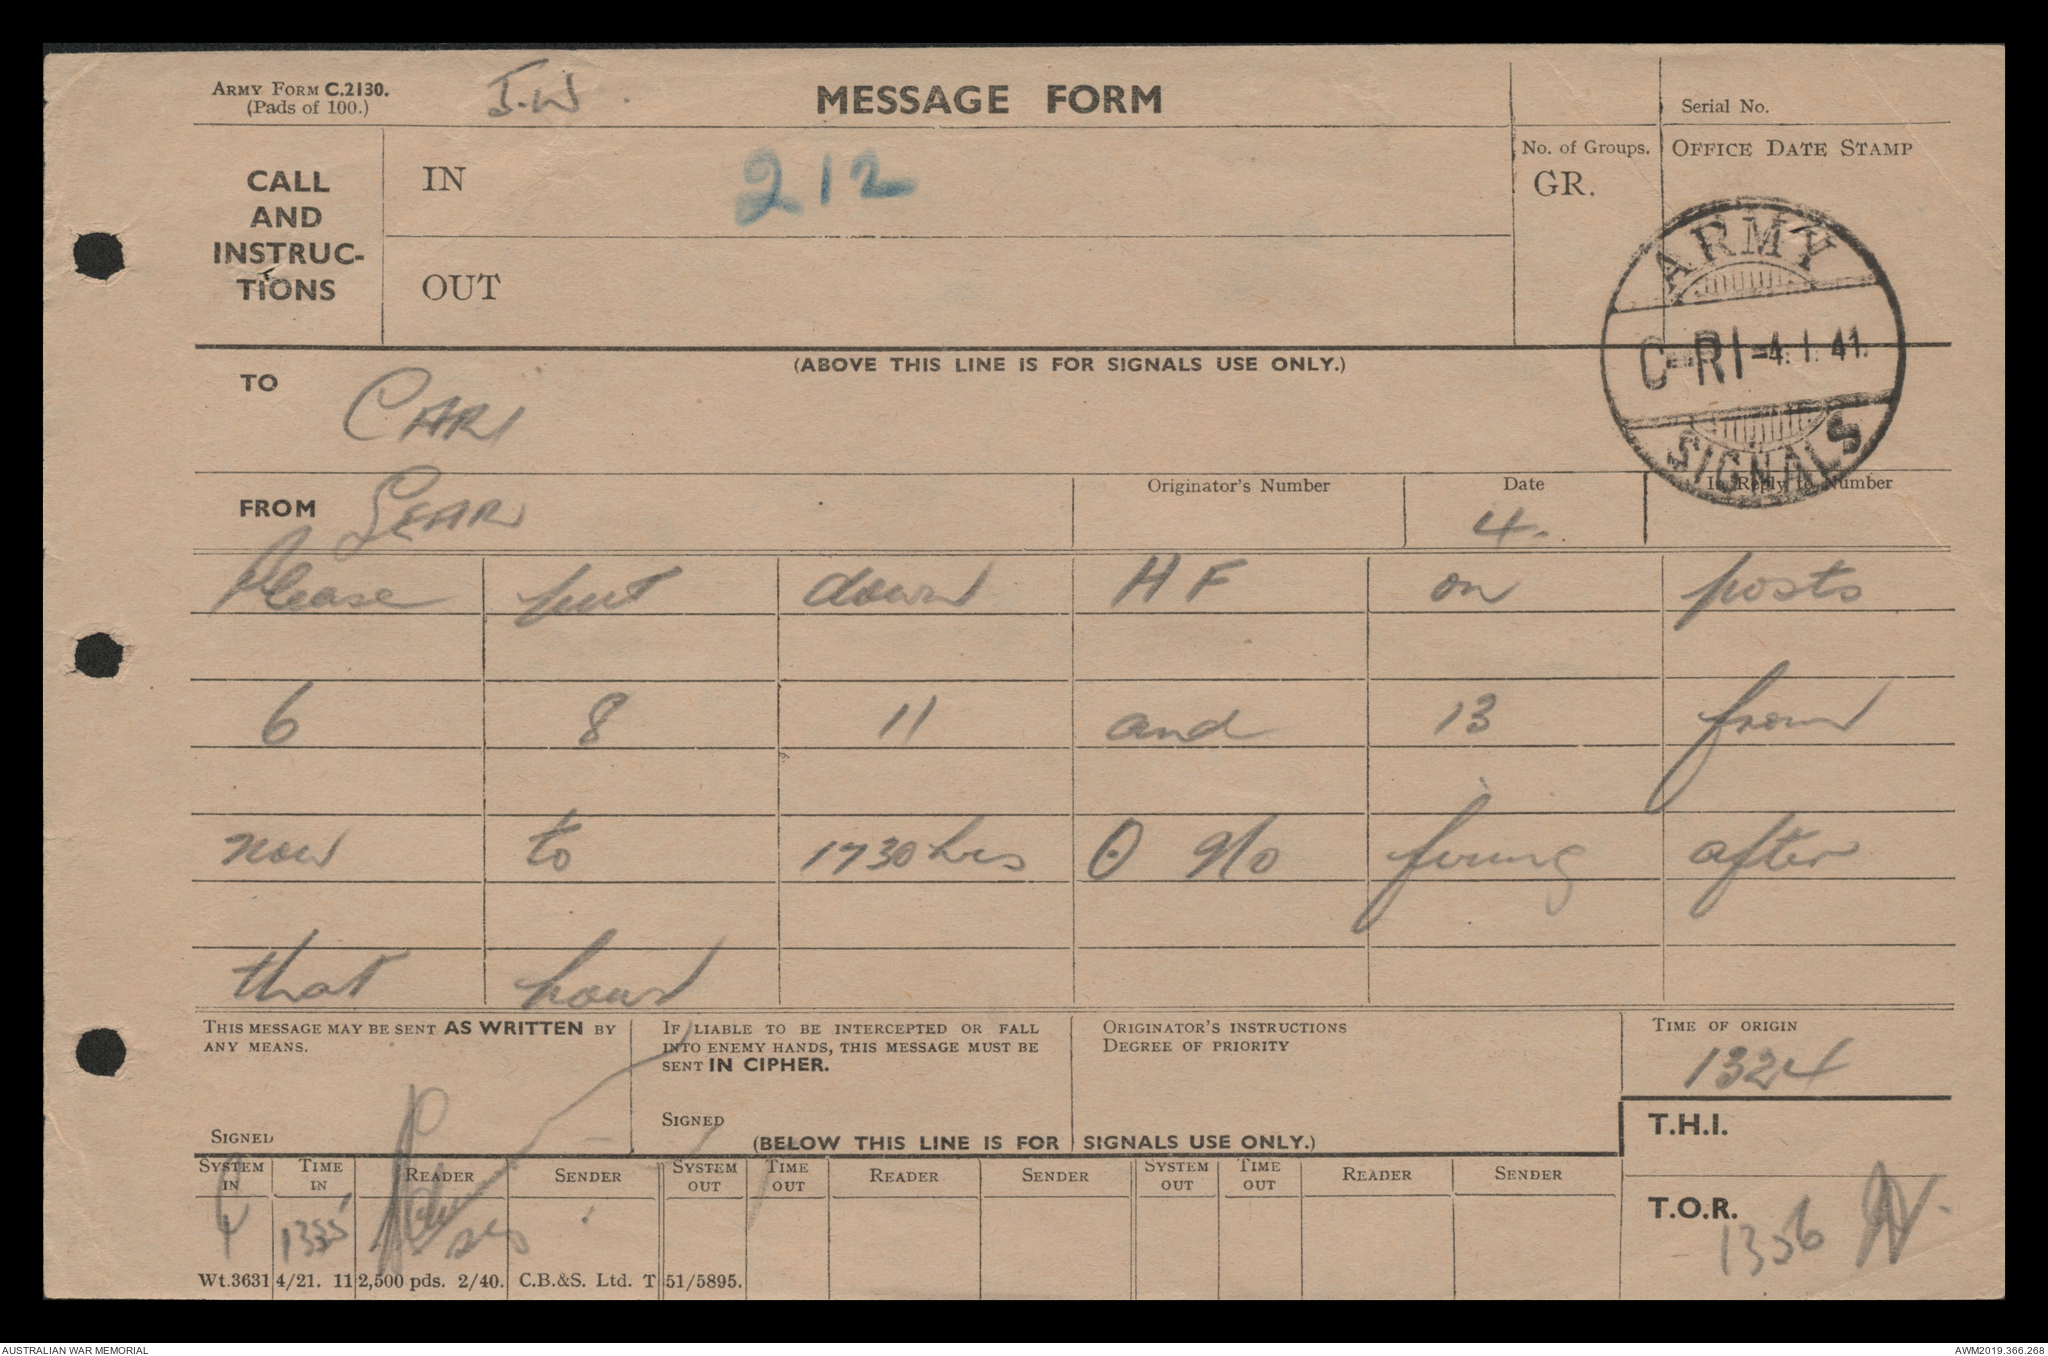 ARMY FORM C.2130.
(Pads of 100.)
J.W.
MESSAGE FORM
Serial No.
CALL AND INSTRUC-TIONS
IN
212
No. of Groups.
GR.
OFFICE DATE STAMP
OUT
ARMY
C-RI-4.1.41.
SIGNALS
(ABOVE THIS LINE IS FOR SIGNALS USE ONLY.)
TO
CARI
FROM
Originator's Number
Date
4.
In Reply to Number
Please put down HF on posts
6 8 11 and 13 from
now to 1730 hrs No firing after
that hour
THIS MESSAGE MAY BE SENT AS WRITTEN BY
ANY MEANS.
SIGNED
IF LIABLE TO BE INTERCEPTED OR FALL
INTO ENEMY HANDS, THIS MESSAGE MUST BE
SENT IN CIPHER.
SIGNED
ORIGINATOR'S INSTRUCTIONS
DEGREE OF PRIORITY
TIME OF ORIGIN
1324
T.H.I.
(BELOW THIS LINE IS FOR SIGNALS USE ONLY.)
SYSTEM IN
TIME IN
READER
SENDER
SYSTEM OUT
TIME OUT
READER
SENDER
SYSTEM OUT
TIME OUT
READER
SENDER
1355
T.O.R.
1356
Wt.3631 4/21. 112,500 pds. 2/40. C.B.&S. Ltd. T 51/5895.
AUSTRALIAN WAR MEMORIAL
AWM2019.366.268